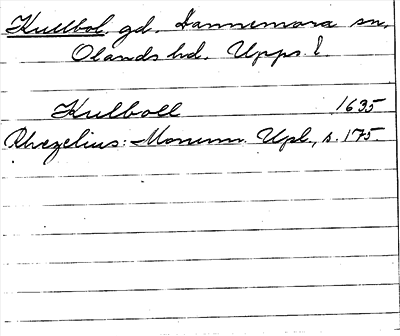 Kullbol, gd. Dannemora sn,
Olands hd. Upps. l.
Kulboll 1635
Rhezelius: Monum. Upl., s. 175.